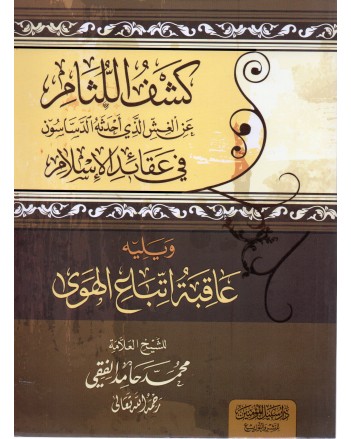 كشف اللثام
عن الغش الذي أحدثه الدساسون
في عقائد الإسلام
ويليه
عاقبة اتباع الهوى
للشيخ العلامة
محمد حامد الفقي
رحمه الله تعالى
دار سبيل المؤمنين
للنشر والتوزيع